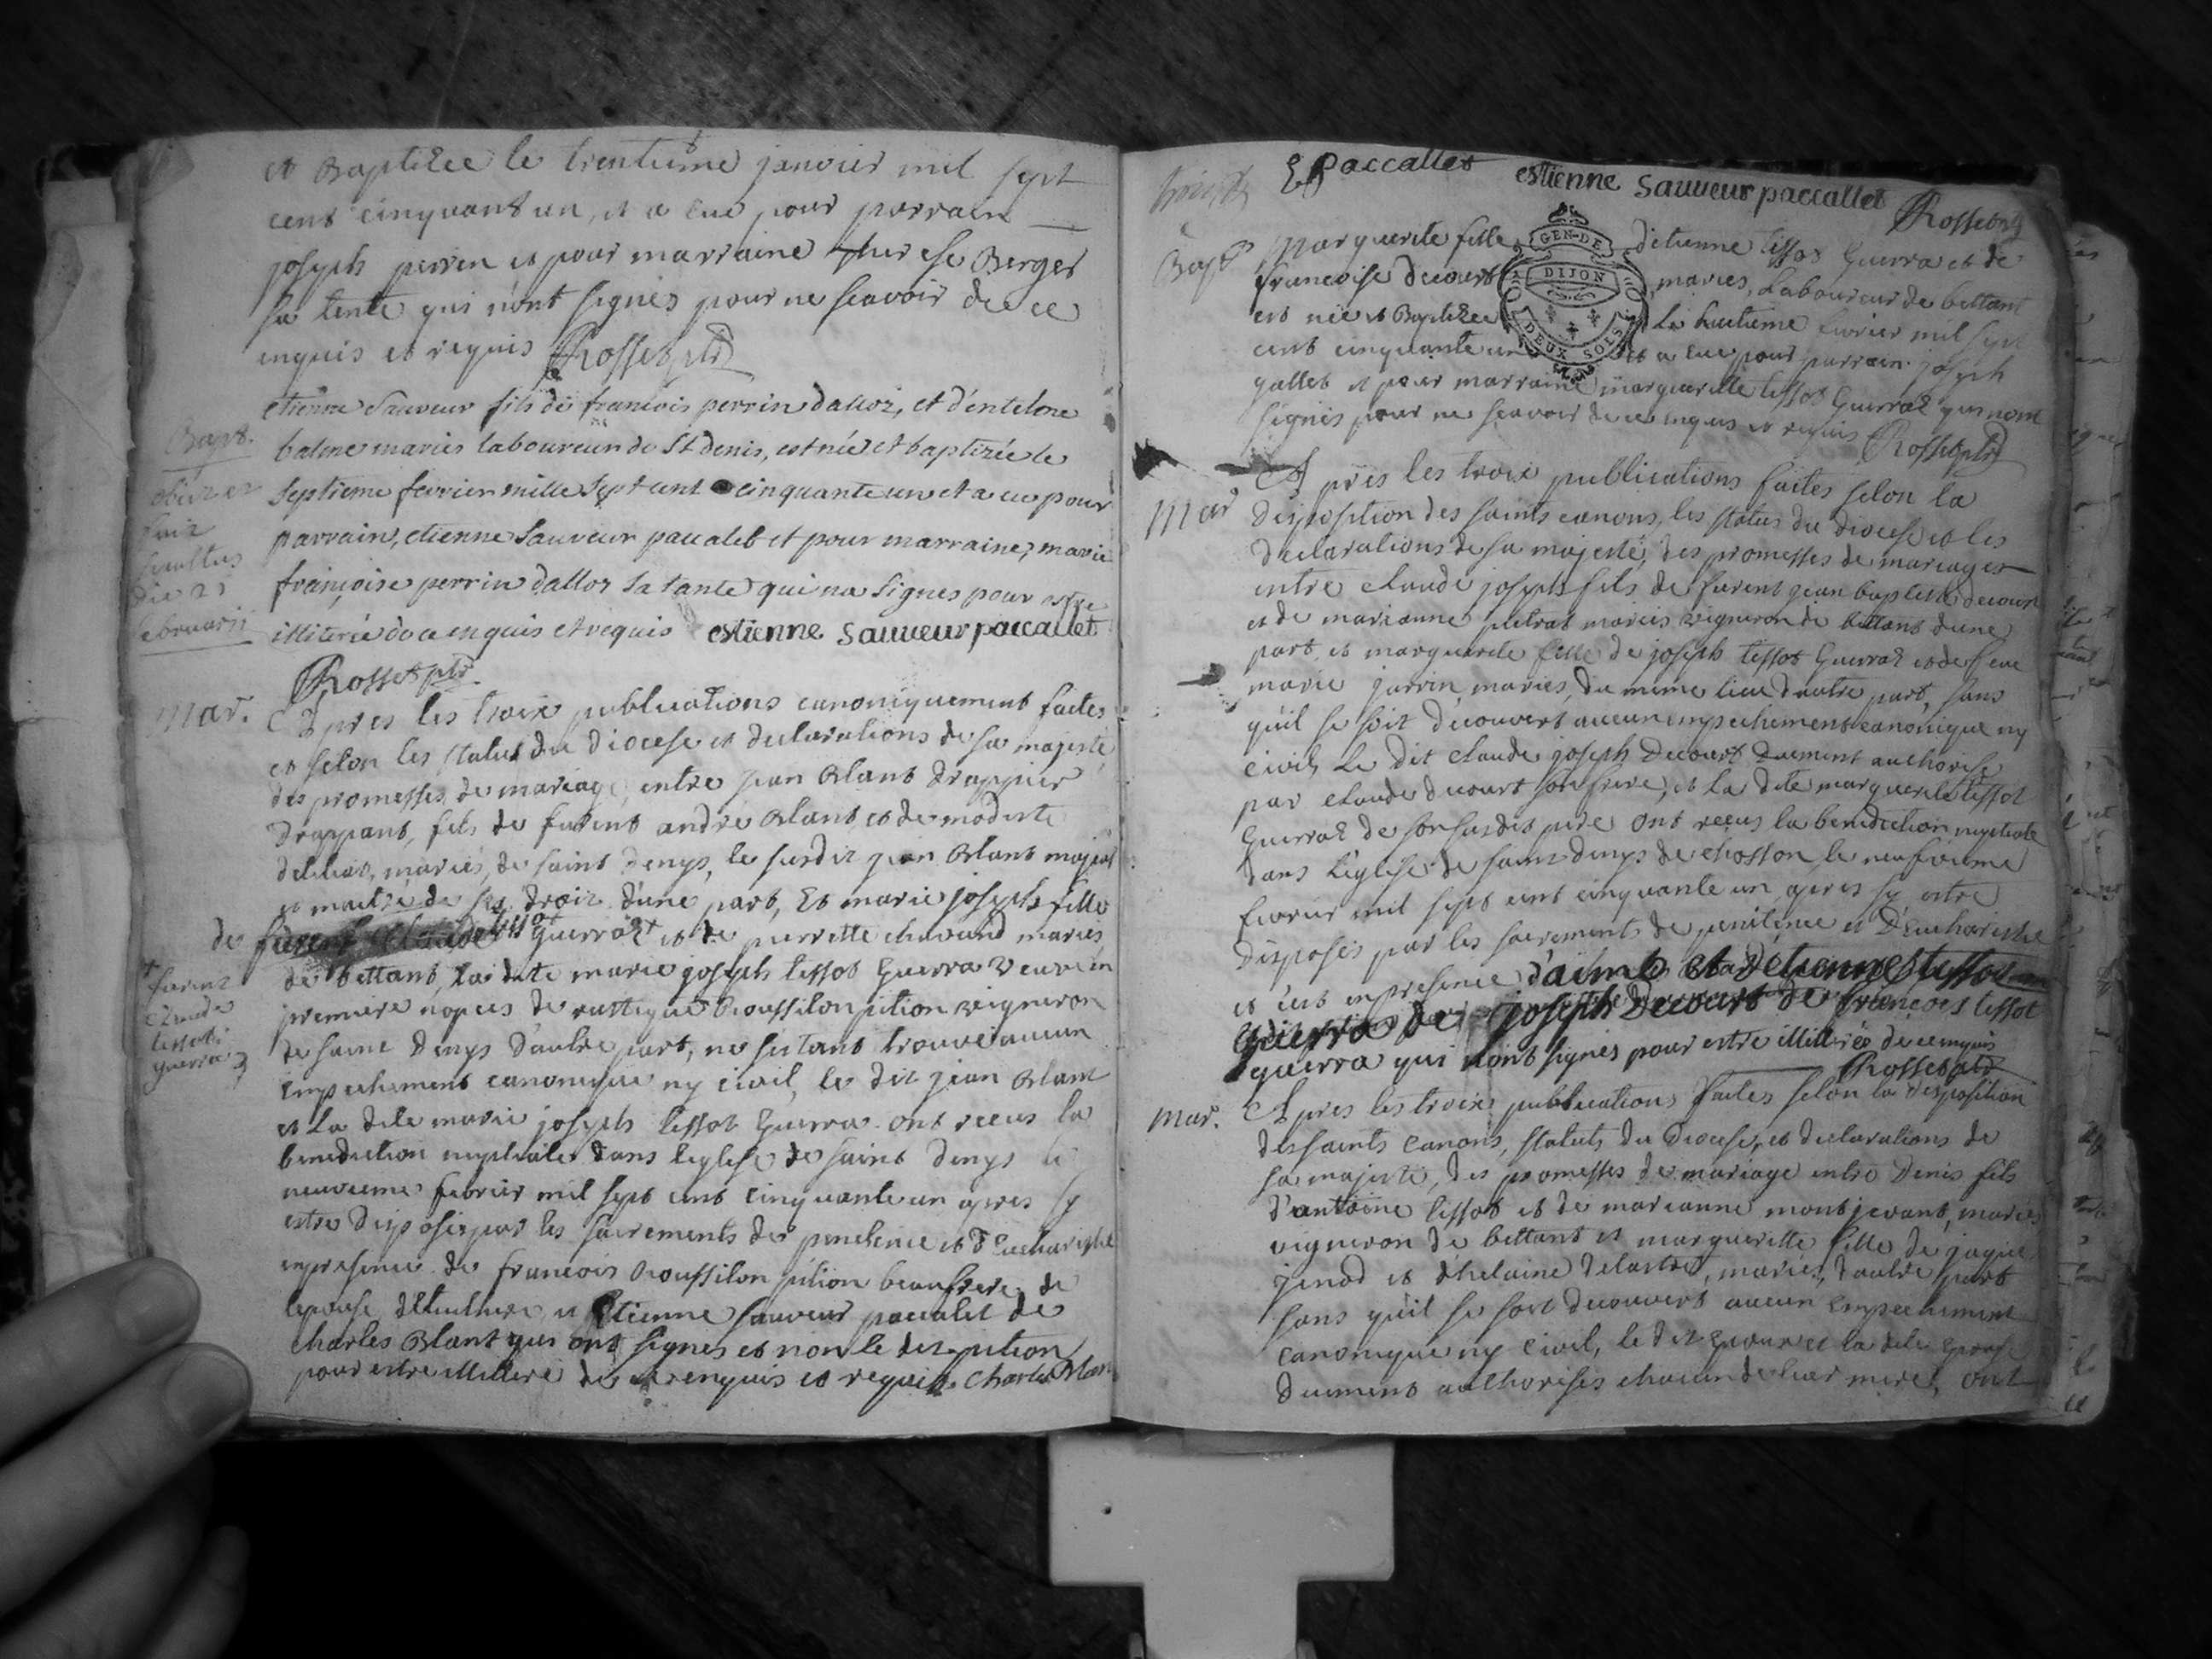 et Baptizee le trentieme janvier mil sept
cent cinquant un, et a eue pour parrain
joseph perrin et pour marraine therese Berger
sa tente qui n'ont signes pour ne scavoir de ce
enquis et requis Rosset ptr
Bapt.
etienne Sauveur fils de francois perrin dalloz, et d'entelme
balme maries laboureur de St denis, est née et baptizée le
septieme fevrier mille sept cent cinquante un et a eu pour
parrain, etienne Sauveur paccalet et pour marraine, marie
françoise perrin dalloz sa tante qui na signes pour estre
illiterée de ce enquis et requis estienne sauveur paccallet
Rosset ptr
obiit et
fuit
sepultus
die 21
februarii
mar.
Apres les troix publications canoniquement faites
et selon les statuts du Diocese et declarations de sa majesté
des promesses de mariage, entre jean Blanc drappier
drappant, fils de furent andré Blanc et de modeste
maries, de saint Denys, le susdit jean Blanc majeur
et maitre de ses droit d'une part, Et marie joseph fille
de tissot guerraz + et de pierrette chavand maries
de bettant, la dite marie joseph tissot Guerra veuve en
premiere nopces de rustique Roussilon pition vigneron
de saint Denys d'autre part, ne s'etant trouvé aucun
empechement canonique ny civil, le dit jean Blanc
et La dite marie joseph tissot Guerra ont recus la
benediction nuptiale dans l'eglise de saint Denys le
neuvieme fevrier mil sept cent cinquante un apres sy
estre disposés par les sacrements de penitence et d'Eucharistie
en presence de francois Roussilon pition beaufrere de
lepouse, et Etienne sauveur paccalet de
charles Blanc qui ont signes et non le dit pition
pour estre illiteré de ce enquis et requis. Charles Blanc
+
furent
claude
tissot
guerraz
E paccallet estienne sauveur paccallet
Rosset ptr
Bapt
Marguerite fille d'etienne tissot Guerra et de
francoise decourt maries, Laboureur de bettant
est née et Baptizée Le huitieme fevrier mil sept
cent cinquante un et a eue pour parrain joseph
gallet et pour marraine marguerite tissot Guerraz qui n'ont
signés pour ne scavoir de ce enquis et requis Rosset ptr
GEN-DE
DIJON
DEUX SOLS
Mar
Apres les troix publications faites selon la
Disposition des saints canons, les statuts du diocese et les
declarations de sa majesté, des promesses de mariages
entre claude joseph fils de furent jean baptiste decourt
et de marianne maries vigneron de bettant d'une
part, et marguerite fille de joseph tissot Guerraz et de feue
marie jarrin, maries, du meme lieu d'autre part, sans
qu'il se soit decouvert aucun empechement canonique ny
civil, Le dit claude joseph Decourt duement authorisé
par claude decourt son frere, et La dite marguerite tissot
Guerraz de son susdit pere ont reçus la benediction nuptiale
dans l'eglise de saint denys de chosson, le neufvieme
fevrier mil sept cent cinquante un apres sy estre
disposés par les sacrements de penitence et D'eucharistie
et c'est en presence d'aime et d'etienne tissot
guerra de joseph Decourt de françois tissot
guerra qui n'ont signés pour estre illitérés de ce enquis
Rosset ptr
mar.
Apres les troix publications faites selon la disposition
des saints canons, statuts du diocese, et declarations de
sa majesté, des promesses de mariage entre Denis fils
d'antoine tissot et de marianne montjevant, maries
vigneron de bettant et marguerite fille de jaque
jenod et d'helaine delastre, maries, d'autre part
sans qu'il se soit decouvert aucun empechement
canonique ny civil, le dit epoux et la dite epouse
duement authorisés chacun de leur mere, ont